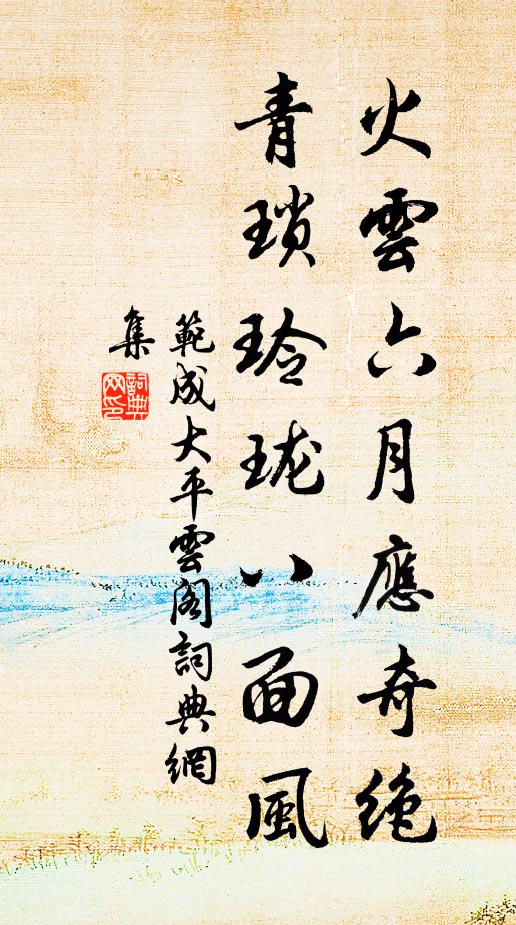 火雲六月應奇絶
青瑣玲瓏八面風
範成大平雲閣詞典網
集
詞典
网印